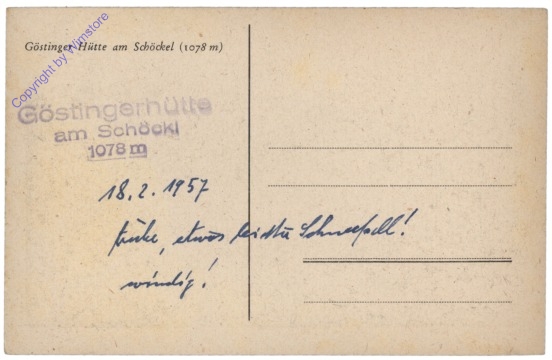 Göstinger Hütte am Schöckel (1078 m)
Copyright by Wimstore
Göstingerhütte
am Schöckl
1078 m
18.2.1957
trübe, etwas leichter Schneefall!
windig!